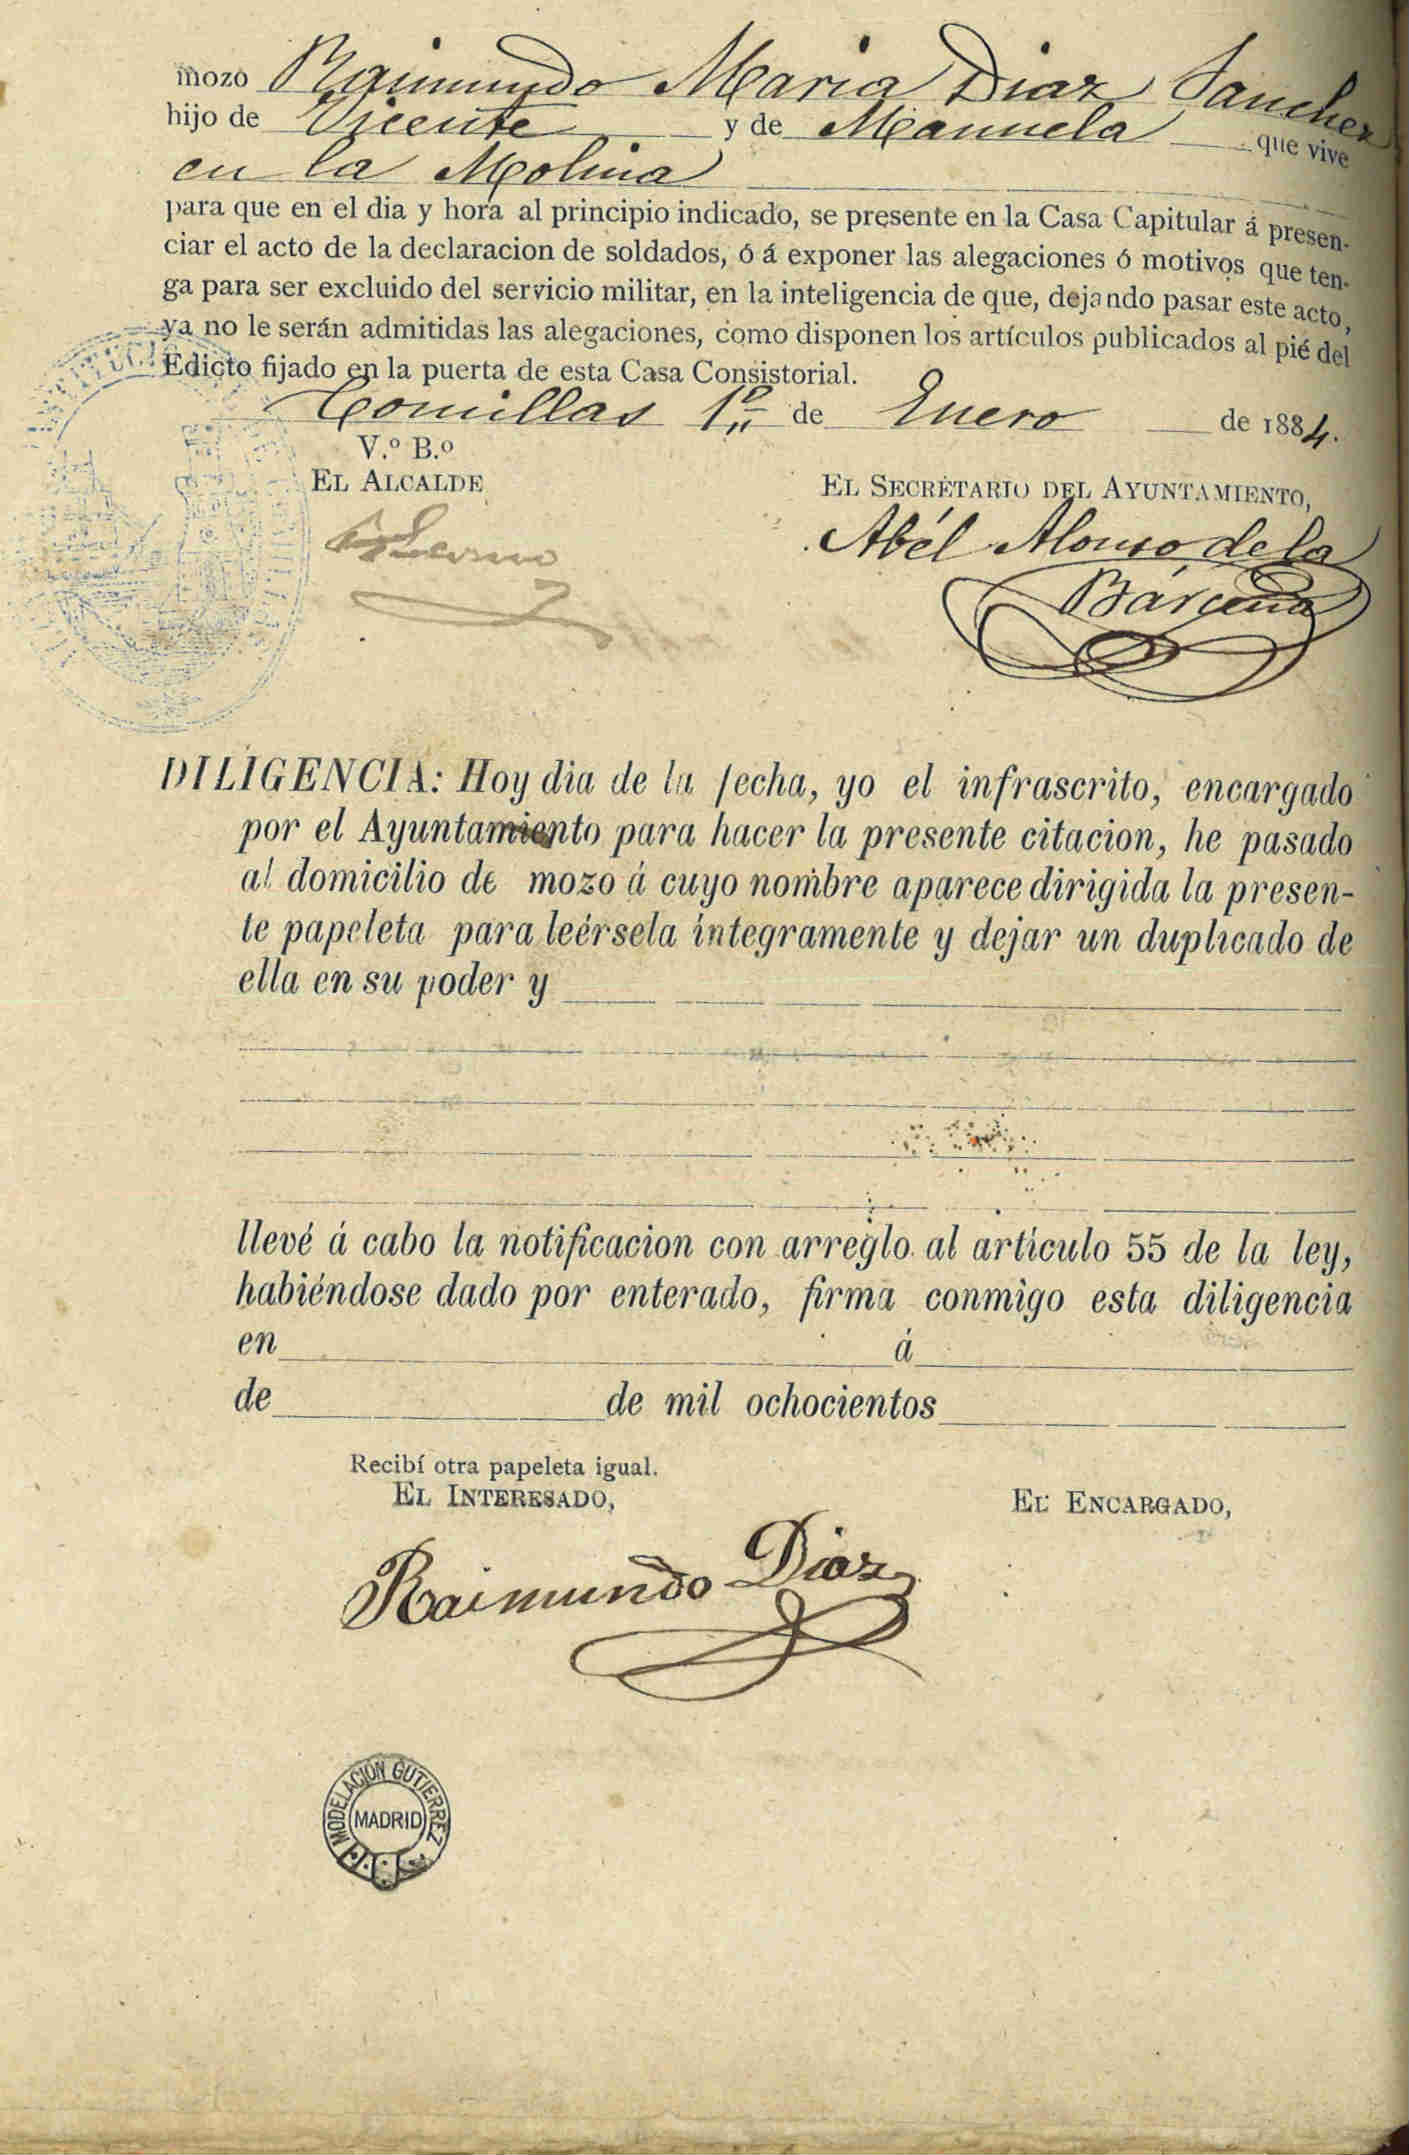 mozo Raimundo Maria Diaz Sanchez
hijo de Vicente y de Manuela que vive
en la Molina
para que en el dia y hora al principio indicado, se presente en la Casa Capitular á presen-
ciar el acto de la declaracion de soldados, ó á exponer las alegaciones ó motivos que ten-
ga para ser excluido del servicio militar, en la inteligencia de que, dejando pasar este acto,
ya no le serán admitidas las alegaciones, como disponen los artículos publicados al pié del
Edicto fijado en la puerta de esta Casa Consistorial.
Comillas 1º de Enero de 1884.
V.º B.º
EL ALCALDE
EL SECRETARIO DEL AYUNTAMIENTO,
Abél Alonso de la
Bárcena
DILIGENCIA: Hoy dia de la fecha, yo el infrascrito, encargado
por el Ayuntamiento para hacer la presente citacion, he pasado
al domicilio de mozo á cuyo nombre aparece dirigida la presen-
te papeleta para leérsela íntegramente y dejar un duplicado de
ella en su poder y
llevé á cabo la notificacion con arreglo al artículo 55 de la ley,
habiéndose dado por enterado, firma conmigo esta diligencia
en á
de de mil ochocientos
Recibí otra papeleta igual.
EL INTERESADO,
EL ENCARGADO,
Raimundo Diaz
MODELACIÓN GUTIERREZ
MADRID